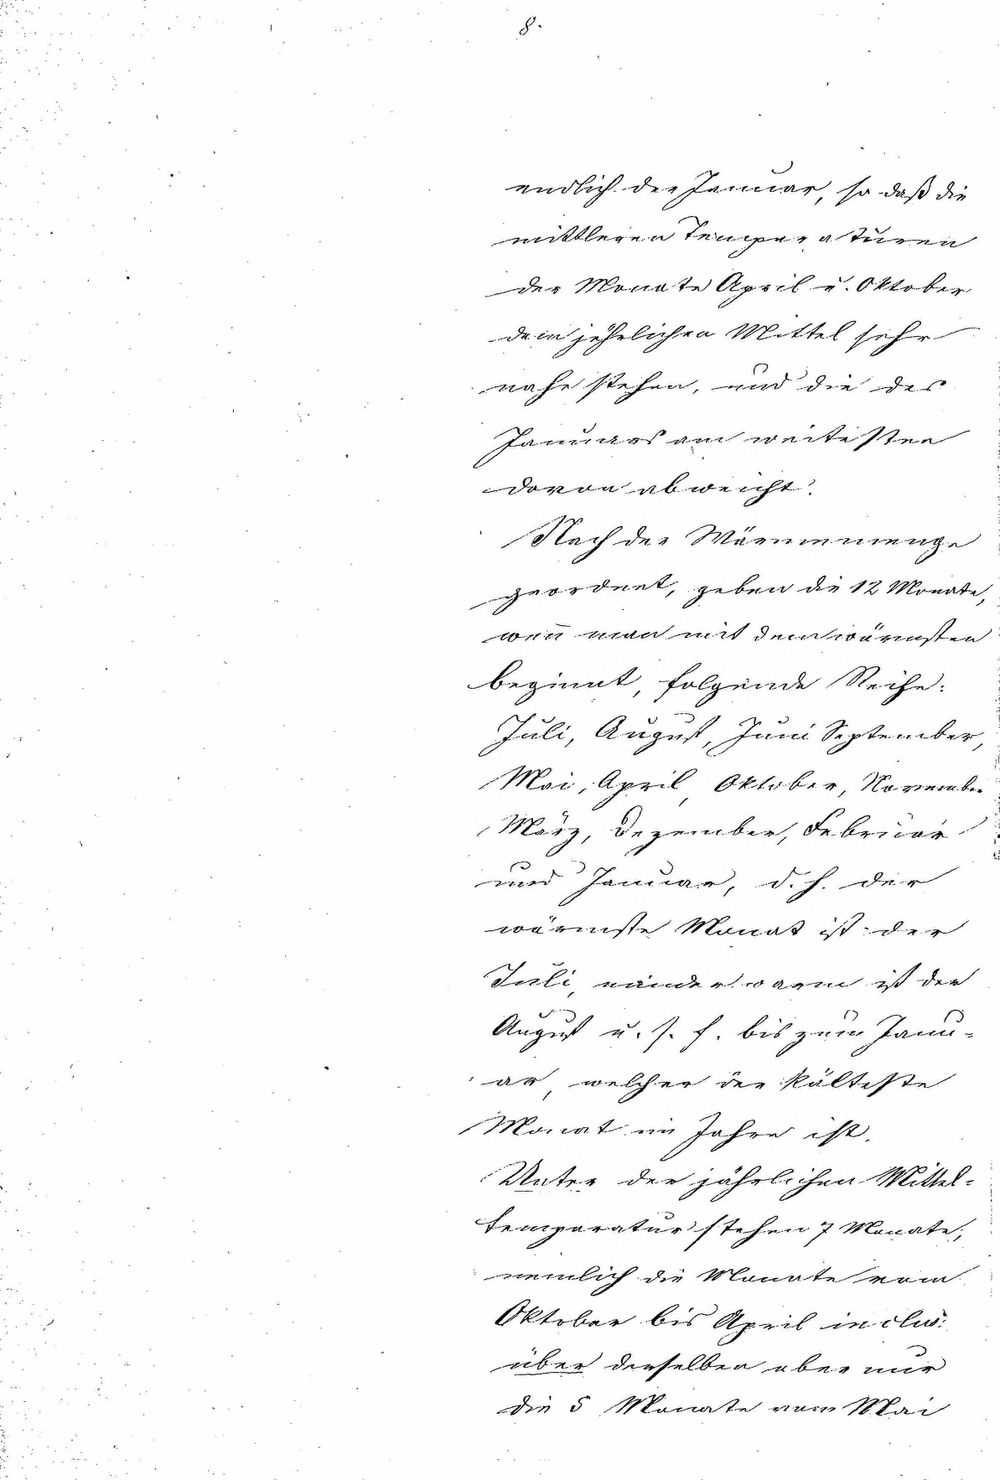 8.
endlich der Januar, so daß die
mittleren Temperaturen
der Monate April u. Oktober
dem jährlichen Mittel sehr
nahe stehen, und die des
Januars am weitesten
davon abweicht.
Nach der Wärmemenge
geordnet, geben die 12 Monate,
weñ man mit dem wärmsten
beginnt, folgende Reihe:
Juli, August, Juni September,
Mai, April, Oktober, November
März, Dezember, Februar
und Januar, d. h. der
wärmste Monat ist der
Juli, minder warm ist der
August u. s. f. bis zum Janu-
ar, welcher der kälteste
Monat im Jahre ist.
Unter der jährlichen Mittel-
temperatur stehen 7 Monate,
nemlich die Monate vom
Oktober bis April inclus:
über derselben aber nur
die 5 Monate vom Mai